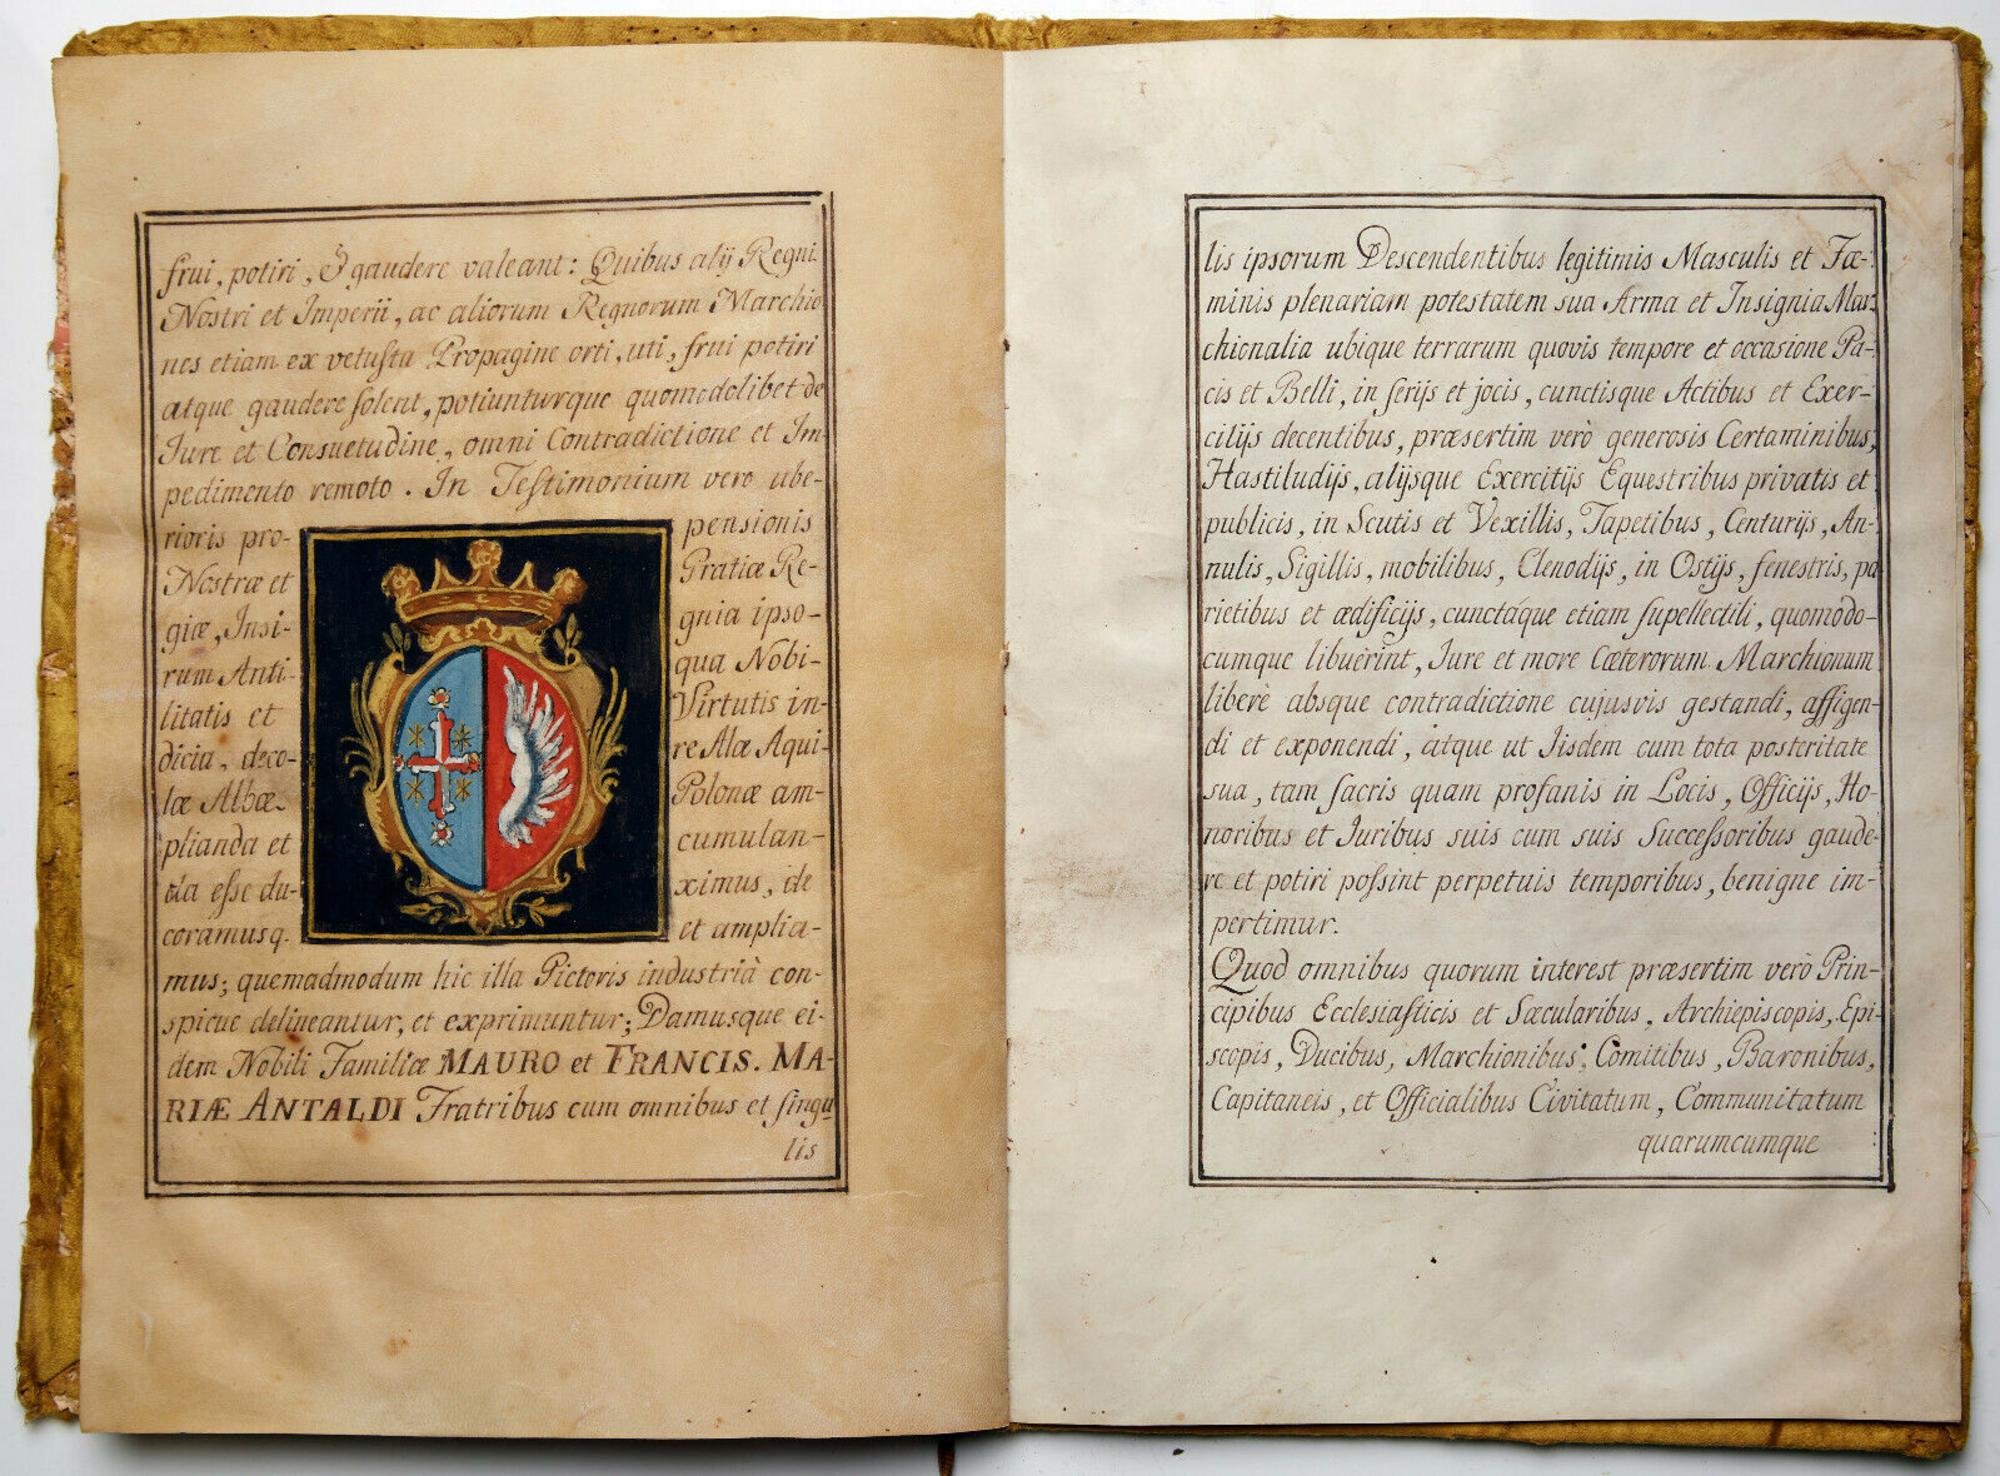 frui, potiri, & gaudere valeant: Quibus alij Regni
Nostri et Imperii, ac aliorum Regnorum Marchio
nes etiam ex vetuſta Propagine orti, uti, frui potiri
atque gaudere ſolent, potiunturque quomodolibet de
Jure et Consuetudine, omni Contradictione et Im-
pedimento remoto. In Teſtimonium vero ube-
rioris pro- pensionis
Nostræ et Gratiæ Re-
giæ, Insi- gnia ipso-
rum Anti- qua Nobi-
litatis et Virtutis in-
dicia, deco- re Alæ Aqui-
læ Albæ Polonæ am-
plianda et cumulan-
da eſse du- ximus, de
coramusq. et amplia-
mus; quemadmodum hic illa Pictoris industriâ con-
spicue delineantur, et exprimuntur; Damusque ei-
dem Nobili Familiæ MAURO et FRANCIS. MA-
RIÆ ANTALDI Fratribus cum omnibus et ſingu
lis
lis ipsorum Descendentibus legitimis Masculis et Fæ-
minis plenariam potestatem sua Arma et Insignia Mar-
chionalia ubique terrarum quovis tempore et occasione Pa-
cis et Belli, in ſerijs et jocis, cunctisque Actibus et Exer-
citijs decentibus, præsertim verò generosis Certaminibus,
Hastiludijs, alijsque Exercitijs Equestribus privatis et
publicis, in Scutis et Vexillis, Tapetibus, Centurijs, An-
nulis, Sigillis, mobilibus, Clenodijs, in Ostijs, fenestris, pa
rietibus et ædificijs, cunctáque etiam ſupellectili, quomodo-
cumque libuerint, Jure et more Cæterorum Marchionum
liberè absque contradictione cujusvis gestandi, affigen-
di et exponendi, atque ut Iisdem cum tota posteritate
sua, tam ſacris quam profanis in Locis, Officijs, Ho-
noribus et Iuribus suis cum suis Succeſsoribus gaude-
re et potiri poſsint perpetuis temporibus, benigne im-
pertimur.
Quod omnibus quorum interest præsertim verò Prin-
cipibus Eccleſiaſticis et Sæcularibus, Archiepiscopis, Epi-
scopis, Ducibus, Marchionibus, Comitibus, Baronibus,
Capitaneis, et Officialibus Civitatum, Communitatum
quarumcumque